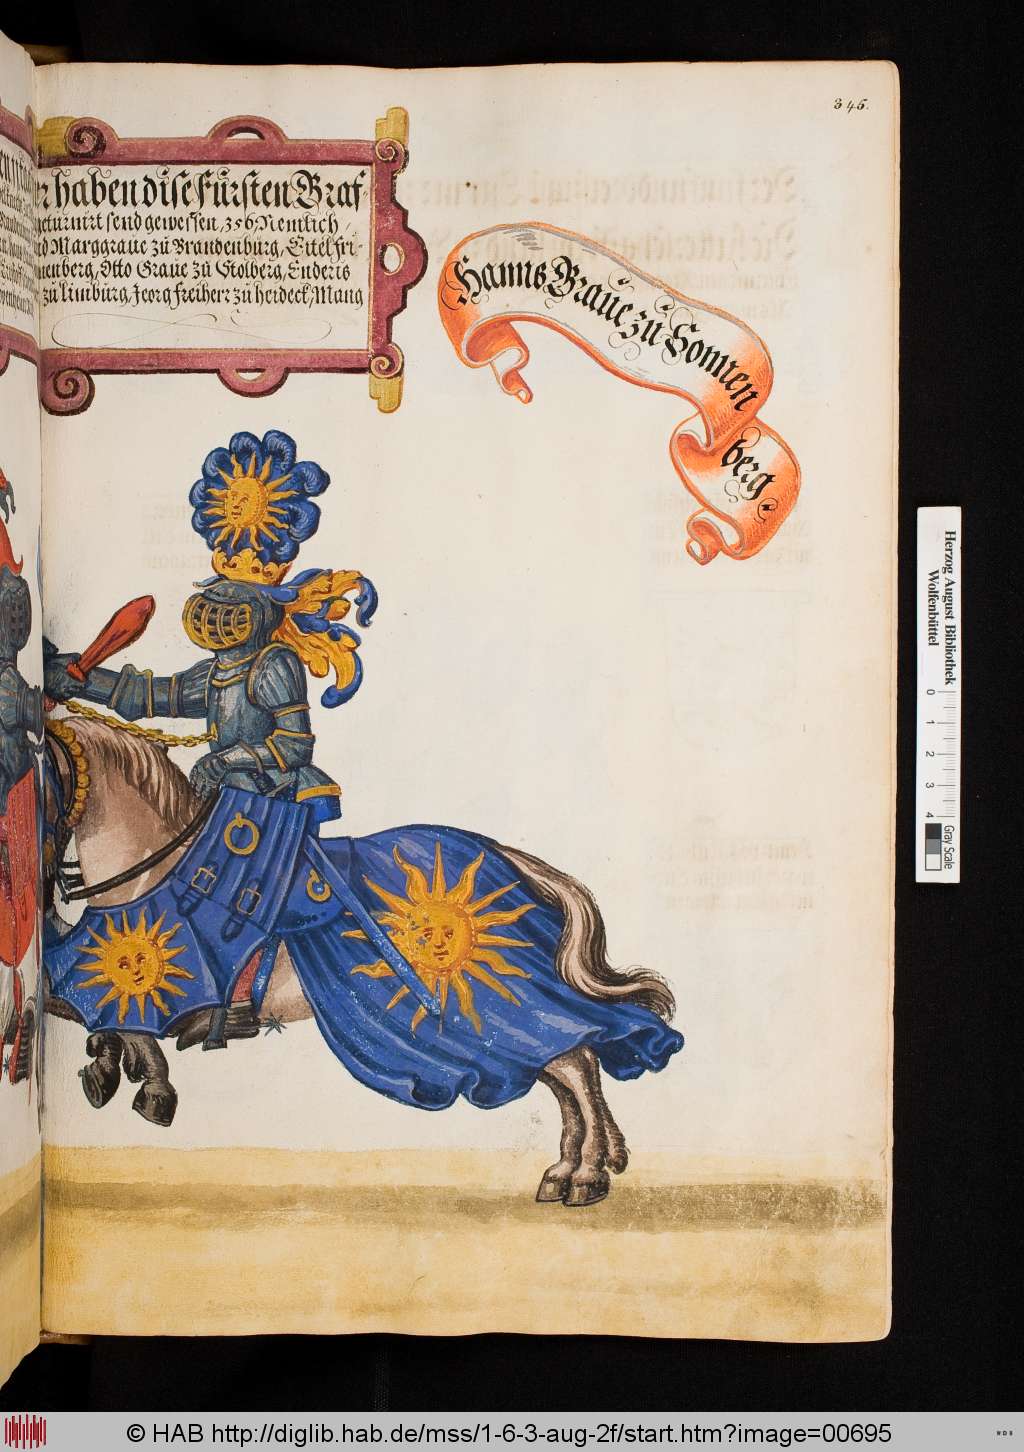 346.
er haben dise Fürsten Graf-
geturnirt send gewessen, 356, Nemlich,
nd Marggraue zů Brandenbůrg, Eitelfri-
nenberg, Otto Graue zů Stolberg, Enderis
zů Limbůrg, Jeorg freiherr zů heideck, Mang
Hanns Graue zů Sonnen
berg
Herzog August Bibliothek
Wolfenbüttel
0 1 2 3 4
Gray Scale
© HAB http://diglib.hab.de/mss/1-6-3-aug-2f/start.htm?image=00695